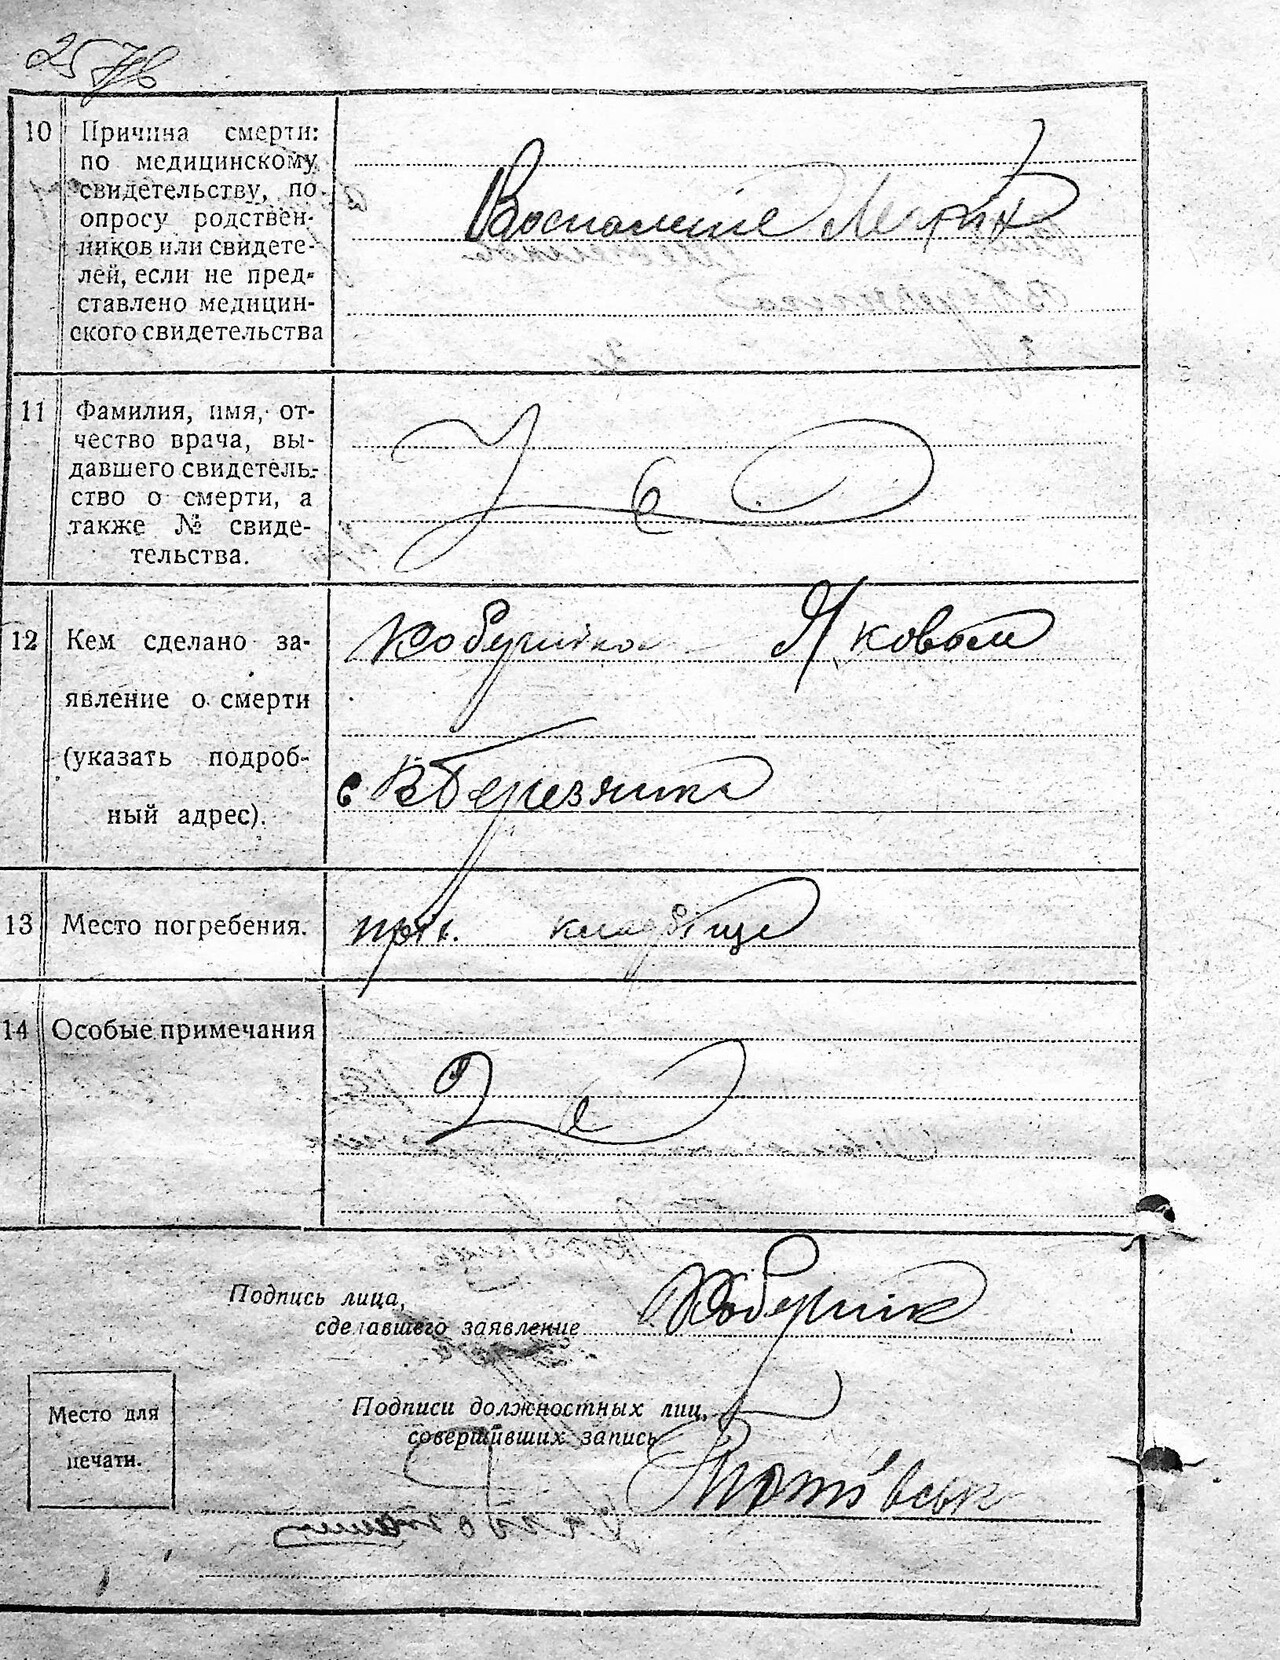 25
10 Причина смерти:
по медицинскому
свидетельству, по
опросу родствен-
ников или свидете-
лей, если не пред-
ставлено медицин-
ского свидетельства
Воспаление Легких
11 Фамилия, имя, от-
чество врача, вы-
давшего свидетель-
ство о смерти, а
также № свиде-
тельства.
12 Кем сделано за-
явление о смерти
(указать подроб-
ный адрес).
Яковом
с В Березянка
13 Место погребения.
кладбище
14 Особые примечания
Подпись лица,
сделавшего заявление
Подписи должностных лиц,
совершивших запись
Место для
печати.